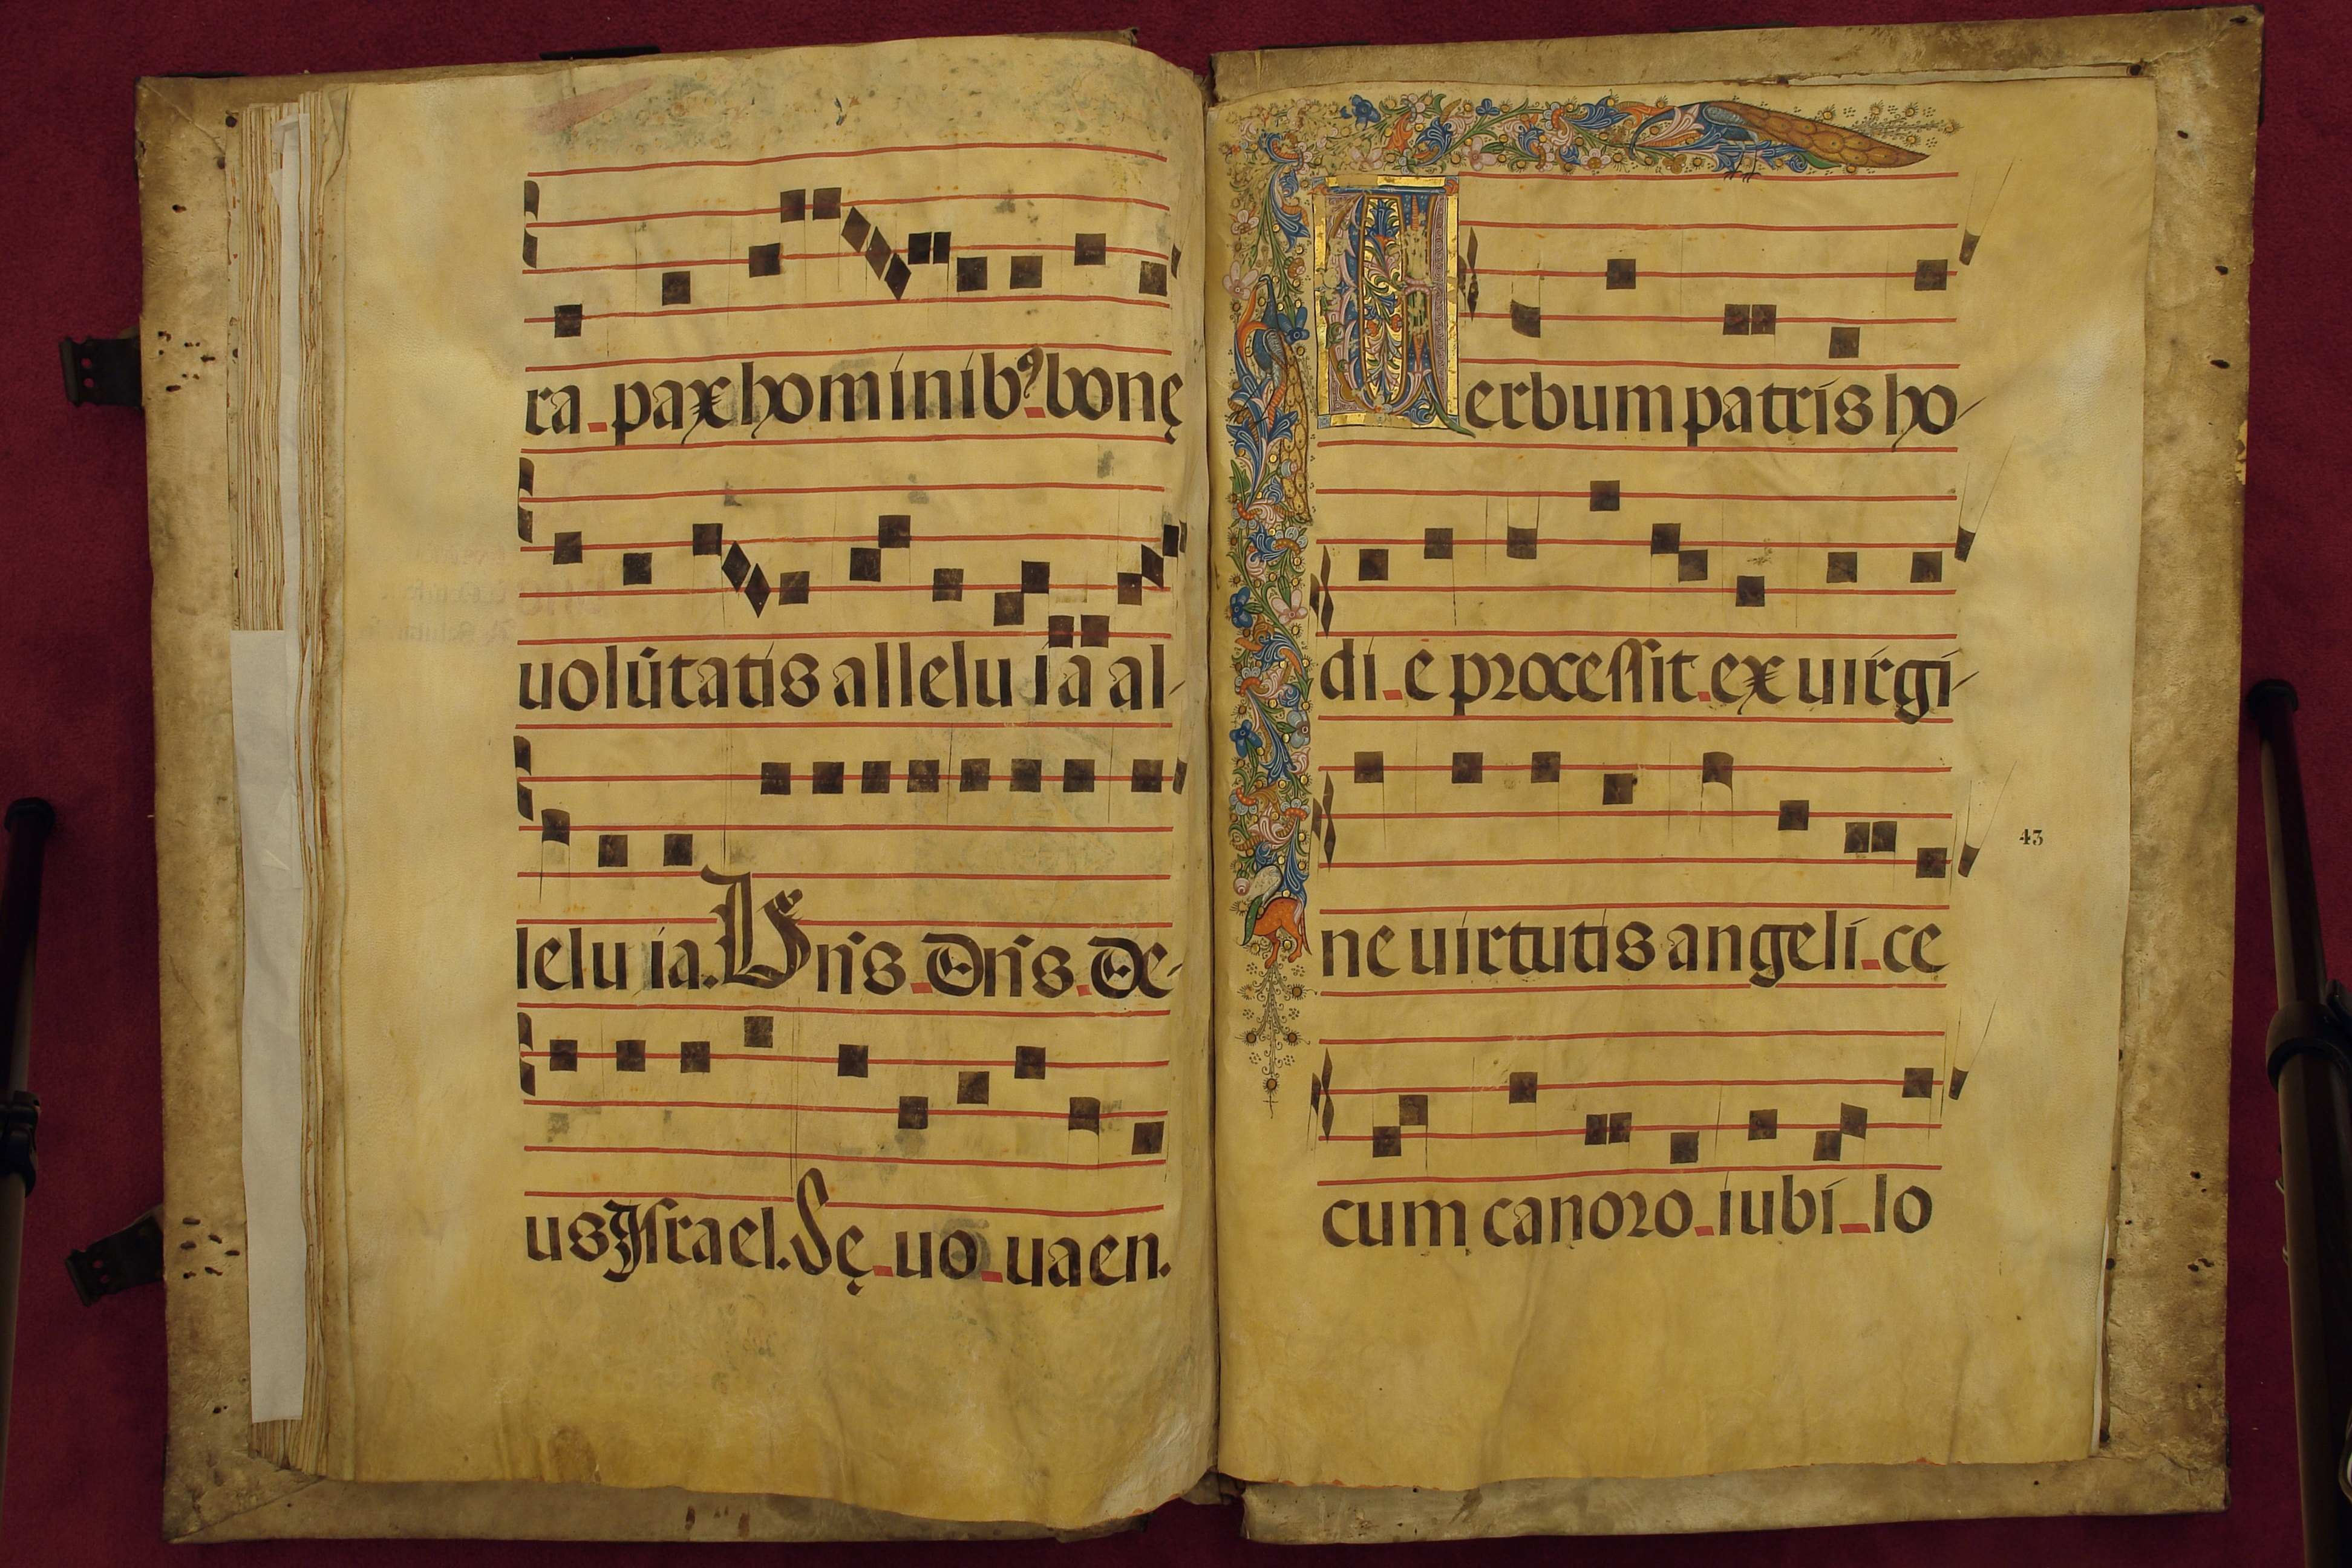 ra pax hominib⁹ bonę
uolũtatis alleluia al-
leluia. Bn̄s Dn̄s De-
us Israel. Sę uo uaen.
Uerbum patris ho-
di e processit ex uirgi-
ne uirtutis angeli ce
43
cum canoro iubi lo